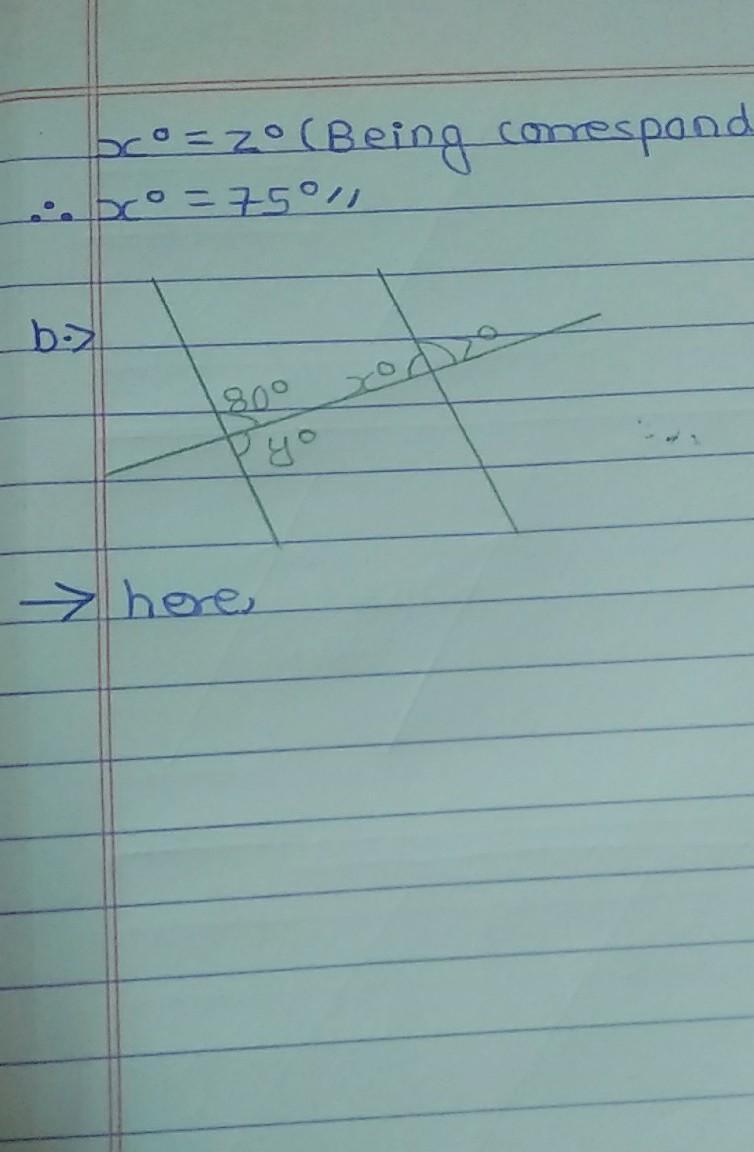 x° = z° (Being correspond
∴ x° = 75°//
b.>
80°
x°
z°
y°
→ here,